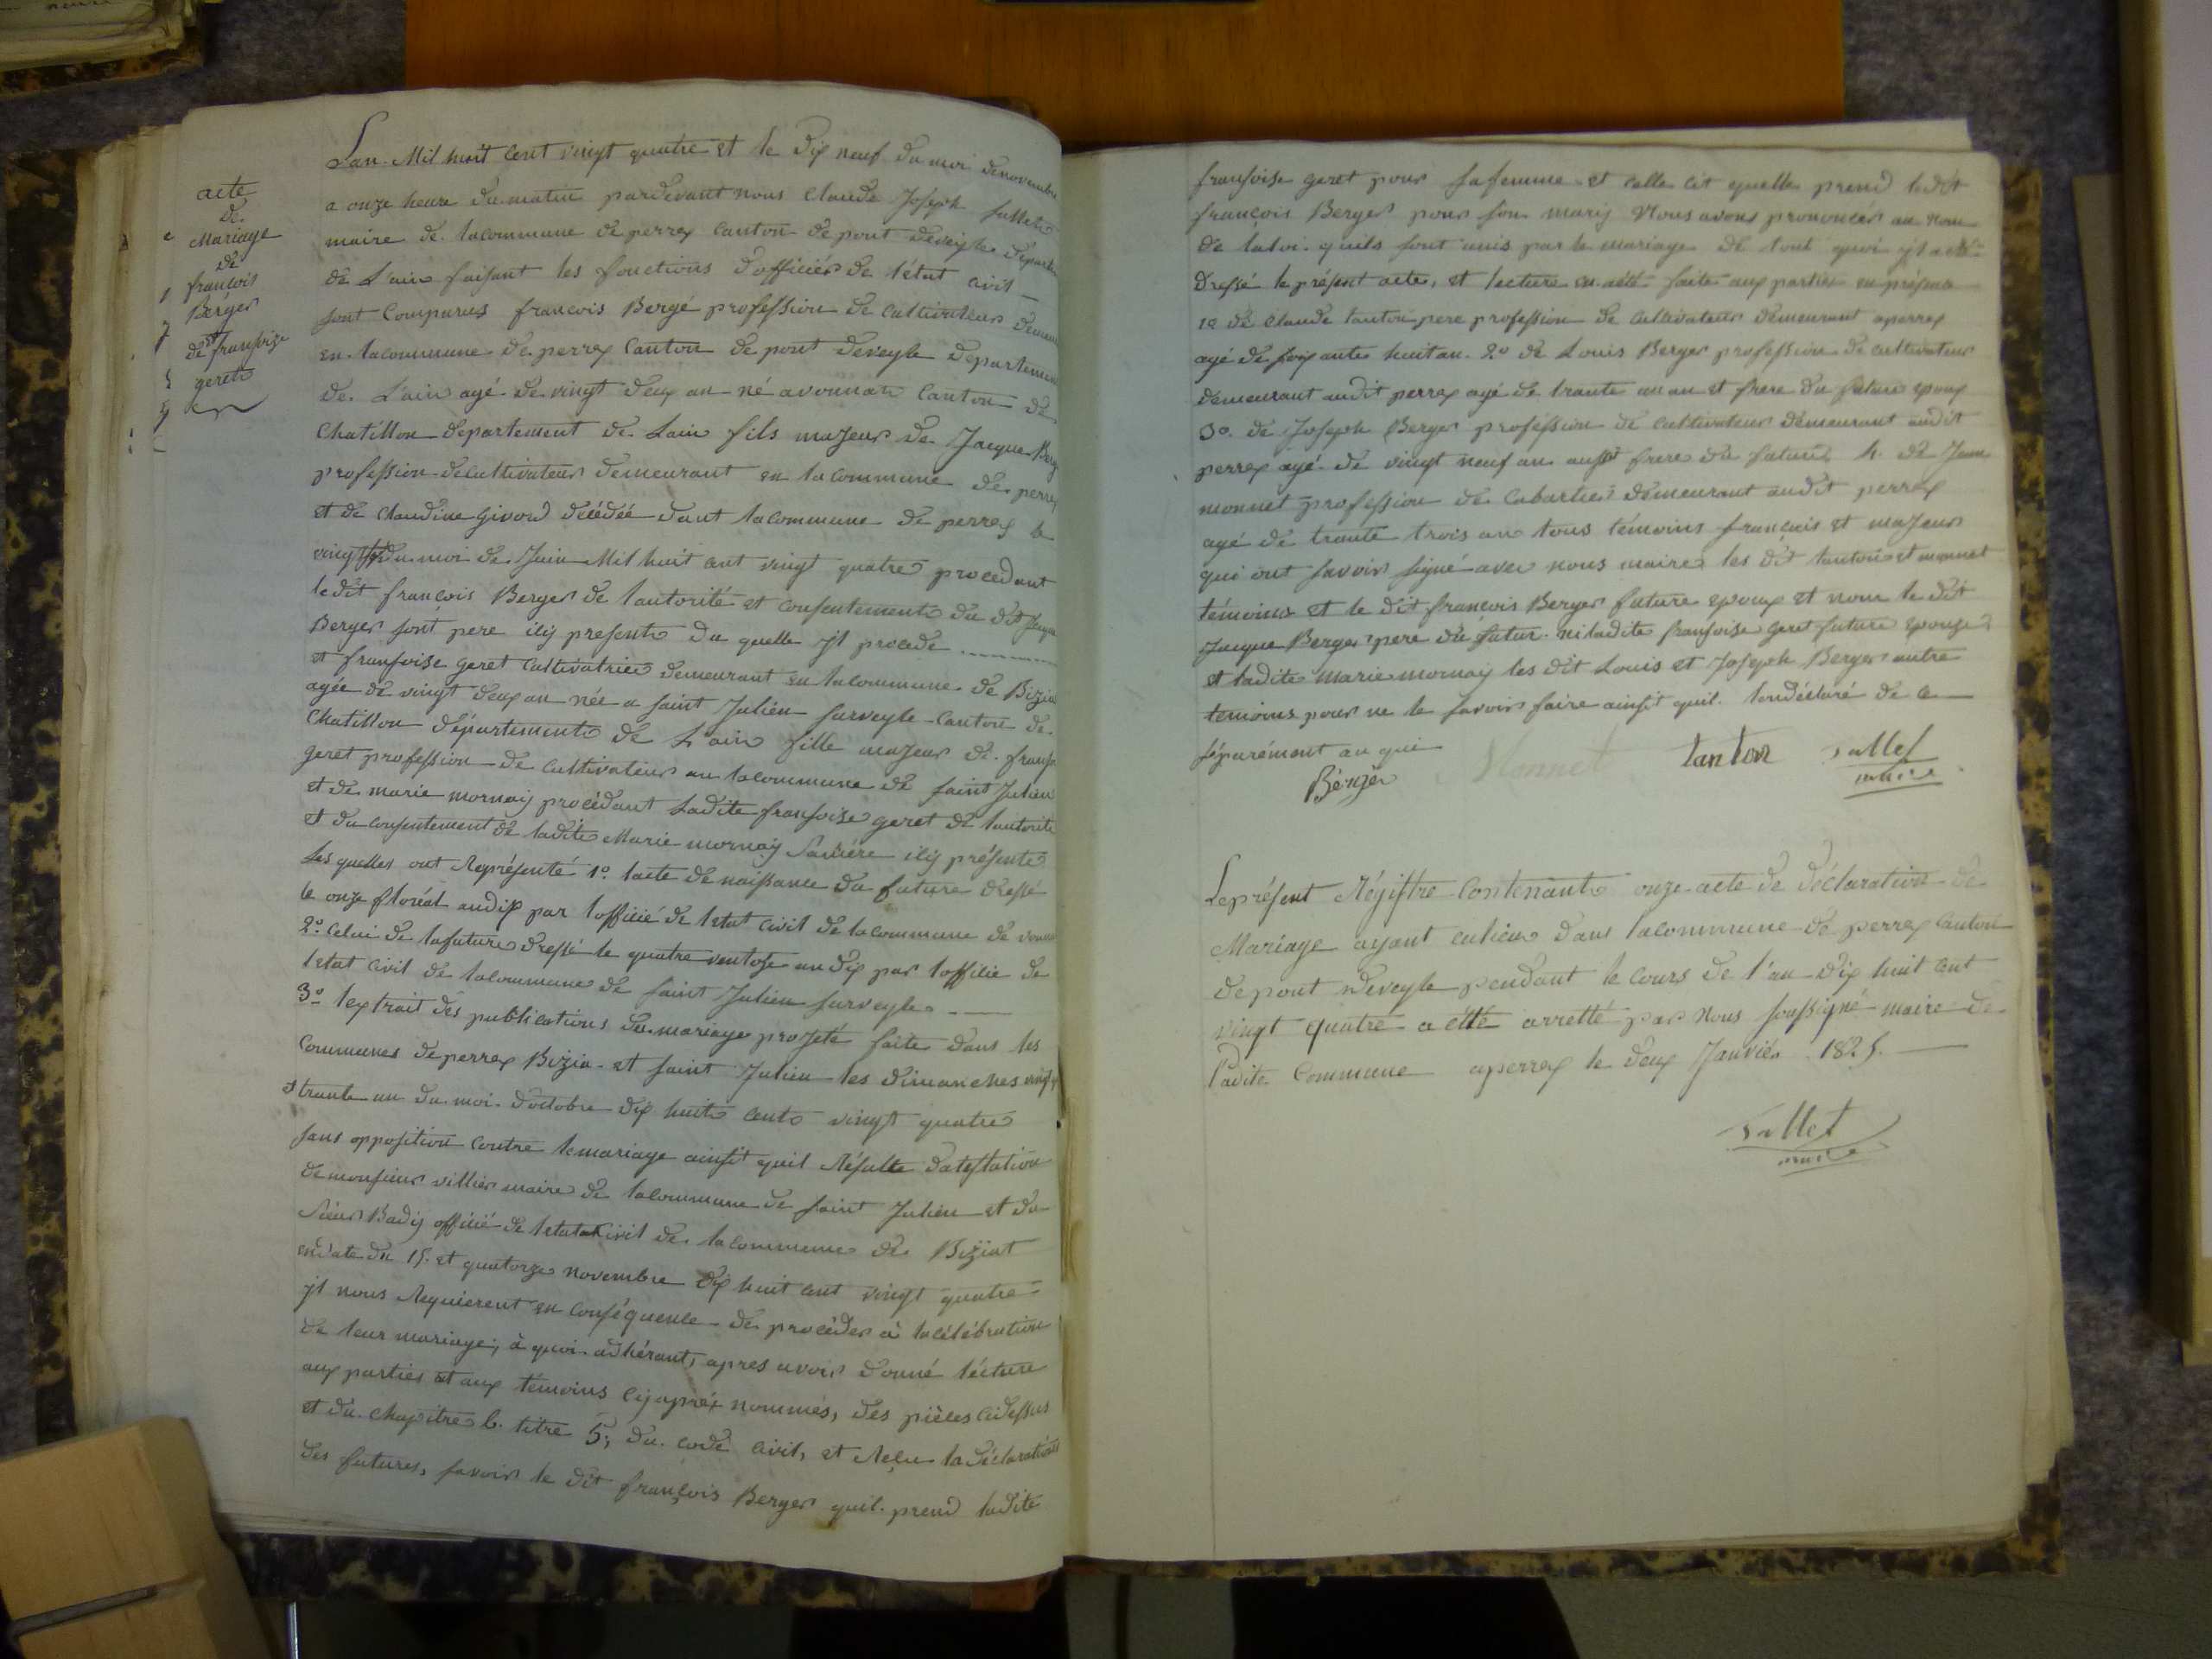 acte
de
Mariage
de
francois
Berger
et
de fransoize
geret
Lan Mil huit cent vingt quatre et le dix neuf du moi denovembre
a onze heure du matin pardevant nous Claude Joseph
maire de lacommune de perrex canton de pont deveyle
de Lain faisant les fonctions dofficier de létat civil
sont Comparus francois Bergé profession de cultivateur
en lacommune de perrex Canton de pont deveyle departement
de Lain agé de vingt deux an né avonnat Canton de
Chatillon departement de Lain fils majeur de Jacque Berg
profession decultivateur demeurant en lacommune de perrex
et de Claudine Givord décédée dant lacommune de perrex le
vingt du moi de Juin Mil huit cent vingt quatre procedant
ledit francois Berger de lautorité et consentement du dit Jacque
Berger sont pere icy present du quelle jl procede
et fransoise geret Cultivatrice demeurant en lacommune de Bizia
agée de vingt deux an née a saint Julien surveyle Canton de
Chatillon département de Lain fille majeur de
geret profession de cultivateur au lacommune de saint Julien
et de marie mornay procédant Ladite fransoise geret de lautorité
et du consentement de ladite Marie mornay Samére icy présente
Les quelles ont Représenté 1.o lacte de naissance du future dressé
le onze floréal andix par lofficié de letat civil de lacommune de
2.o Celui de lafuture dressé le quatre ventose an dix par lofficie de
letat civil de lacommune de saint Julien surveyle
3.o lextrait des publications du mariage projeté faite dans les
Communes de perrex Bizia et saint Julien les dimanches
et trante un du moi doctobre dix huit cent vingt quatre
sans opposition contre lemariage ainsit quil Résulte datestation
demonsieur villier maire de lacommune de saint Julien et du
Sieur Badij officié de letatat civil de lacommune de Biziat
endate du 15. et quatorze novembre dix huit cent vingt quatre
jl nous Requierent en conséquence de procèder à lacélébration
de leur mariage; à quoi adhérant, apres avoir donné lécture
aux parties et aux témoins cijaprés nommés, des pièces cidessus
et du chapitre 6. titre 5; du code civil, et Reçu la déclaration
des futures, savoir le dit françois Berger quil prend ladite
fransoise geret pour safemme et celle cit quelle prend ledit
françois Berger pour son mariy Nous avons prononcér au nom
de laloi quils sont unis par le mariage de tout quoi
dressé le présent acte, et lecture en aété faite aux parties en présence
1o de Claude tanton pere profession de Cultivateur demeurant aperrex
agé de soixante huit an 2o de Louis Berger profession de cultivateur
demeurant audit perrex agé de trante un an et frere du future epoux
3o de Joseph Berger profession de cultivateur demeurant audit
perrex agé de vingt neuf an aussi frere du future 4. de Jean
monnet profession de Cabartier demeurant audit perrex
agé de trante trois an tous témoins francais et majeur
qui ont savoir signé avec nous maire les dit tanton et monnet
témoins et le dit françois Berger future epoux et nom le dit
Jacque Berger pere du futur ni ladite fransoise geret future epouze
et ladite marie mornay les dit Louis et Joseph Berger autre
temoins pour ne le savoir faire ainsit quil londéclaré de ce
séparément an qui
Bergér Monnet tanton Sallet
maire
Leprésent Régistre contenant onze acte de déclaration de
Mariage ayant eulieu dans lacommune de perrex canton
depont deveyle pendant le cours de l'an dix huit cent
vingt quatre a été arretté par Nous soussigné maire de
ladite Commune aperrex le deux Janvier 1825.
Sallet
maire